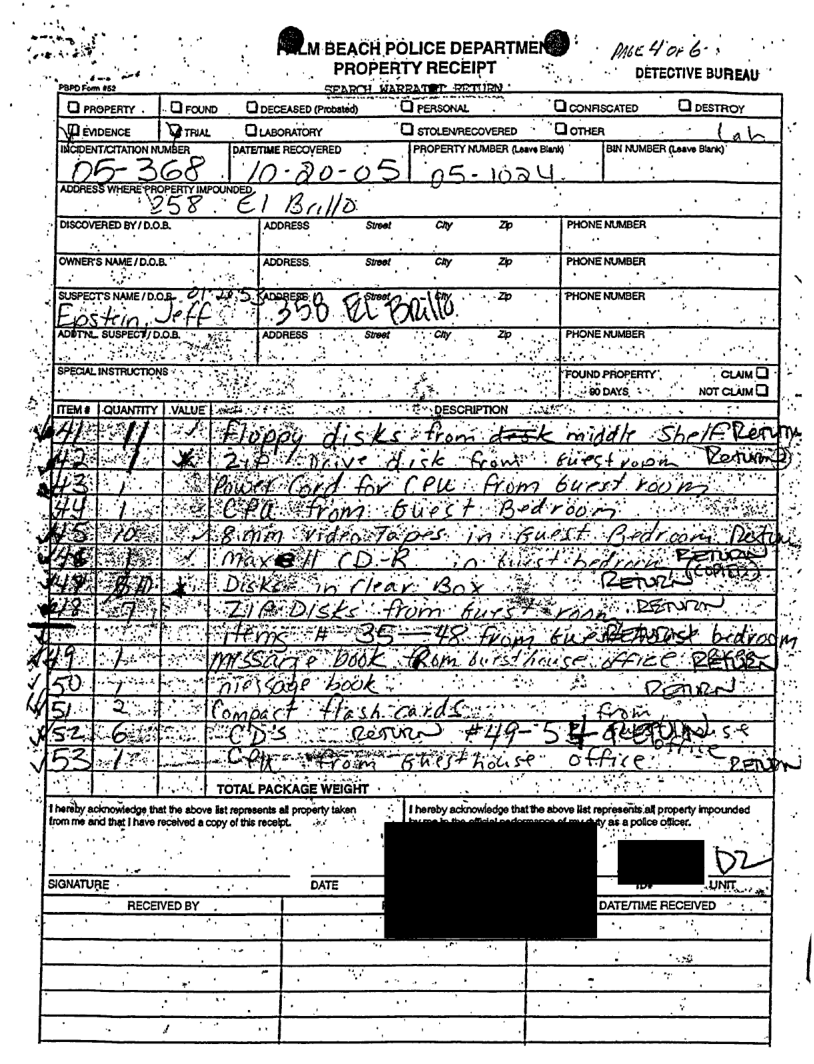 PALM BEACH POLICE DEPARTMENT
PAGE 4 OF 6
PROPERTY RECEIPT
DETECTIVE BUREAU
PBPD Form #52
SEARCH WARRANT RETURN
PROPERTY FOUND DECEASED (Probated) PERSONAL CONFISCATED DESTROY
EVIDENCE TRIAL LABORATORY STOLEN/RECOVERED OTHER Lab
INCIDENT/CITATION NUMBER DATE/TIME RECOVERED PROPERTY NUMBER (Leave Blank) BIN NUMBER (Leave Blank)
05-368 10-20-05 05-1024
ADDRESS WHERE PROPERTY IMPOUNDED
258 El Brillo
DISCOVERED BY / D.O.B. ADDRESS Street City Zip PHONE NUMBER
OWNER'S NAME / D.O.B. ADDRESS Street City Zip PHONE NUMBER
SUSPECT'S NAME / D.O.B. ADDRESS Street City Zip PHONE NUMBER
Epstein, Jeff 358 El Brillo
ADDTNL. SUSPECT / D.O.B. ADDRESS Street City Zip PHONE NUMBER
SPECIAL INSTRUCTIONS FOUND PROPERTY CLAIM
90 DAYS NOT CLAIM
ITEM # QUANTITY VALUE DESCRIPTION
41 11 Floppy disks from desk middle Shelf Return
42 ZIP Drive disk from Guest room Return
43 1 Power Cord for CPU from Guest room
44 1 CPU from Guest Bedroom
45 10 8mm video Tapes in Guest Bedroom Return
46 1 Maxell CD-R in Guest bedroom RETURN
Disks in Clear Box RETURN (COPIED)
48 7 ZIP Disks from Guest room RETURN
items # 35-48 from bedroom
49 1 message book from Guesthouse office RETURN
50 1 message book RETURN
51 2 Compact flash cards from
52 6 CD's RETURN #49-54 office
53 1 CPU from Guesthouse office RETURN
TOTAL PACKAGE WEIGHT
I hereby acknowledge that the above list represents all property taken
from me and that I have received a copy of this receipt.
I hereby acknowledge that the above list represents all property impounded
by me in the official performance of my duty as a police officer.
D2
SIGNATURE DATE ID# UNIT
RECEIVED BY DATE/TIME RECEIVED